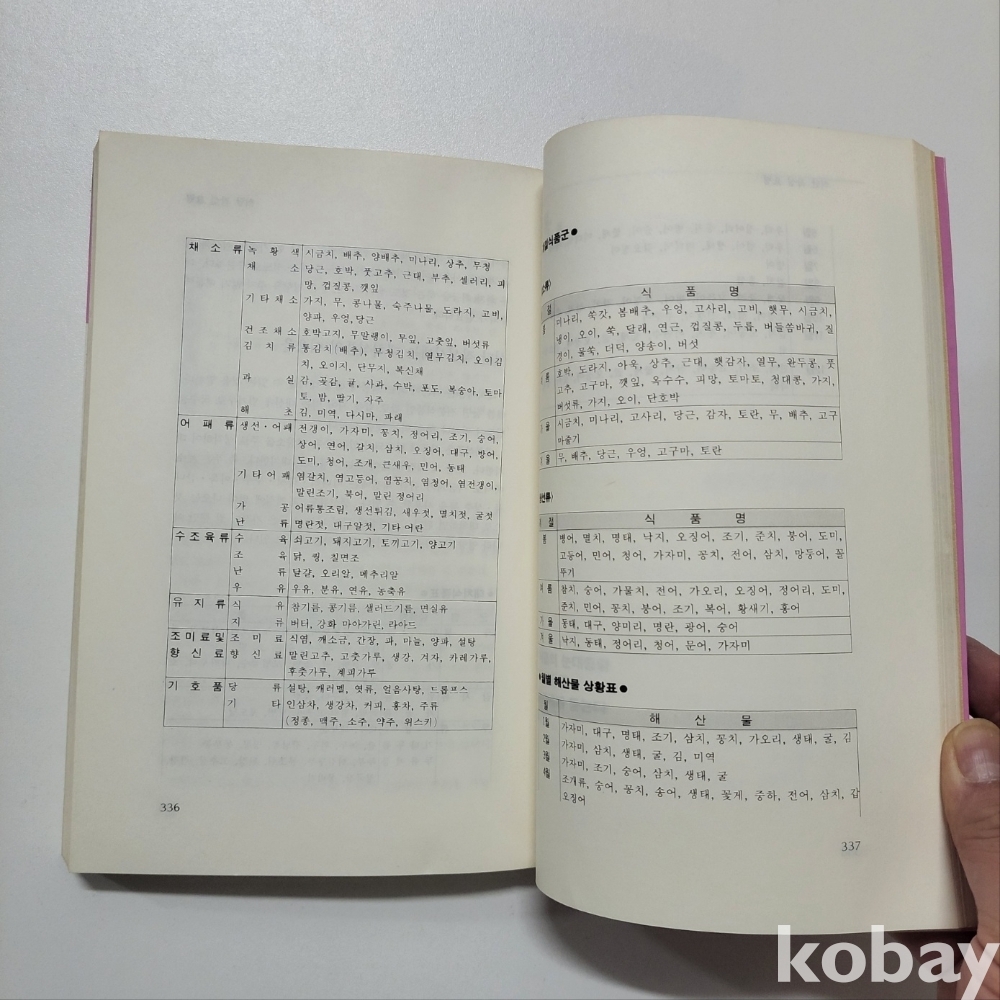 채 소 류 녹 황 색 시금치, 배추, 양배추, 미나리, 상추, 무청
채 소 당근, 호박, 풋고추, 근대, 부추, 셀러리, 피
망, 껍질콩, 깻잎
기타채소 가지, 무, 콩나물, 숙주나물, 도라지, 고비,
양파, 우엉, 당근
건조채소 호박고지, 무말랭이, 무잎, 고춧잎, 버섯류
김 치 류 통김치(배추), 무청김치, 열무김치, 오이김
치, 오이지, 단무지, 복신채
과 실 감, 곶감, 귤, 사과, 수박, 포도, 복숭아, 토마
토, 밤, 딸기, 자주
해 초 김, 미역, 다시마, 파래
어 패 류 생선·어패 전갱이, 가자미, 꽁치, 정어리, 조기, 숭어,
상어, 연어, 갈치, 삼치, 오징어, 대구, 방어,
도미, 청어, 조개, 큰새우, 민어, 동태
기타어패 염갈치, 염고등어, 염꽁치, 염청어, 염전갱이,
말린조기, 북어, 말린 정어리
가 공 어류통조림, 생선튀김, 새우젓, 멸치젓, 굴젓
난 류 명란젓, 대구알젓, 기타 어란
수조육류 수 육 쇠고기, 돼지고기, 토끼고기, 양고기
조 육 닭, 꿩, 칠면조
난 류 달걀, 오리알, 메추리알
우 유 우유, 분유, 연유, 농축유
유 지 류 식 유 참기름, 콩기름, 샐러드기름, 면실유
지 류 버터, 강화 마아가린, 라아드
조미료및 조 미 료 식염, 깨소금, 간장, 파, 마늘, 양파, 설탕
향신료 향 신 료 말린고추, 고춧가루, 생강, 겨자, 카레가루,
후춧가루, 계피가루
기 호 품 당 류 설탕, 캐러멜, 엿류, 얼음사탕, 드롭프스
기 타 인삼차, 생강차, 커피, 홍차, 주류
(정종, 맥주, 소주, 약주, 위스키)
336
식품군●
절 식 품 명
미나리, 쑥갓, 봄배추, 우엉, 고사리, 고비, 햇무, 시금치,
냉이, 오이, 쑥, 달래, 연근, 껍질콩, 두릅, 버들씀바귀, 질
경이, 물쑥, 더덕, 양송이, 버섯
름 호박, 도라지, 아욱, 상추, 근대, 햇감자, 열무, 완두콩, 풋
고추, 고구마, 깻잎, 옥수수, 피망, 토마토, 청대콩, 가지,
버섯류, 가지, 오이, 단호박
을 시금치, 미나리, 고사리, 당근, 감자, 토란, 무, 배추, 고구
마줄기
울 무, 배추, 당근, 우엉, 고구마, 토란
선류〉
절 식 품 명
봄 병어, 멸치, 명태, 낙지, 오징어, 조기, 준치, 붕어, 도미,
고등어, 민어, 청어, 가자미, 꽁치, 전어, 삼치, 망둥어, 꼴
뚜기
름 참치, 숭어, 가물치, 전어, 가오리, 오징어, 정어리, 도미,
준치, 민어, 꽁치, 붕어, 조기, 복어, 황새기, 홍어
가 을 동태, 대구, 양미리, 명란, 광어, 숭어
겨 울 낙지, 동태, 정어리, 청어, 문어, 가자미
●월별 해산물 상황표●
월 해 산 물
1월 가자미, 대구, 명태, 조기, 삼치, 꽁치, 가오리, 생태, 굴, 김
2월 가자미, 삼치, 생태, 굴, 김, 미역
3월 가자미, 조기, 숭어, 삼치, 생태, 굴
4월 조개류, 숭어, 꽁치, 송어, 생태, 꽃게, 중하, 전어, 삼치, 갑
오징어
337
kobay